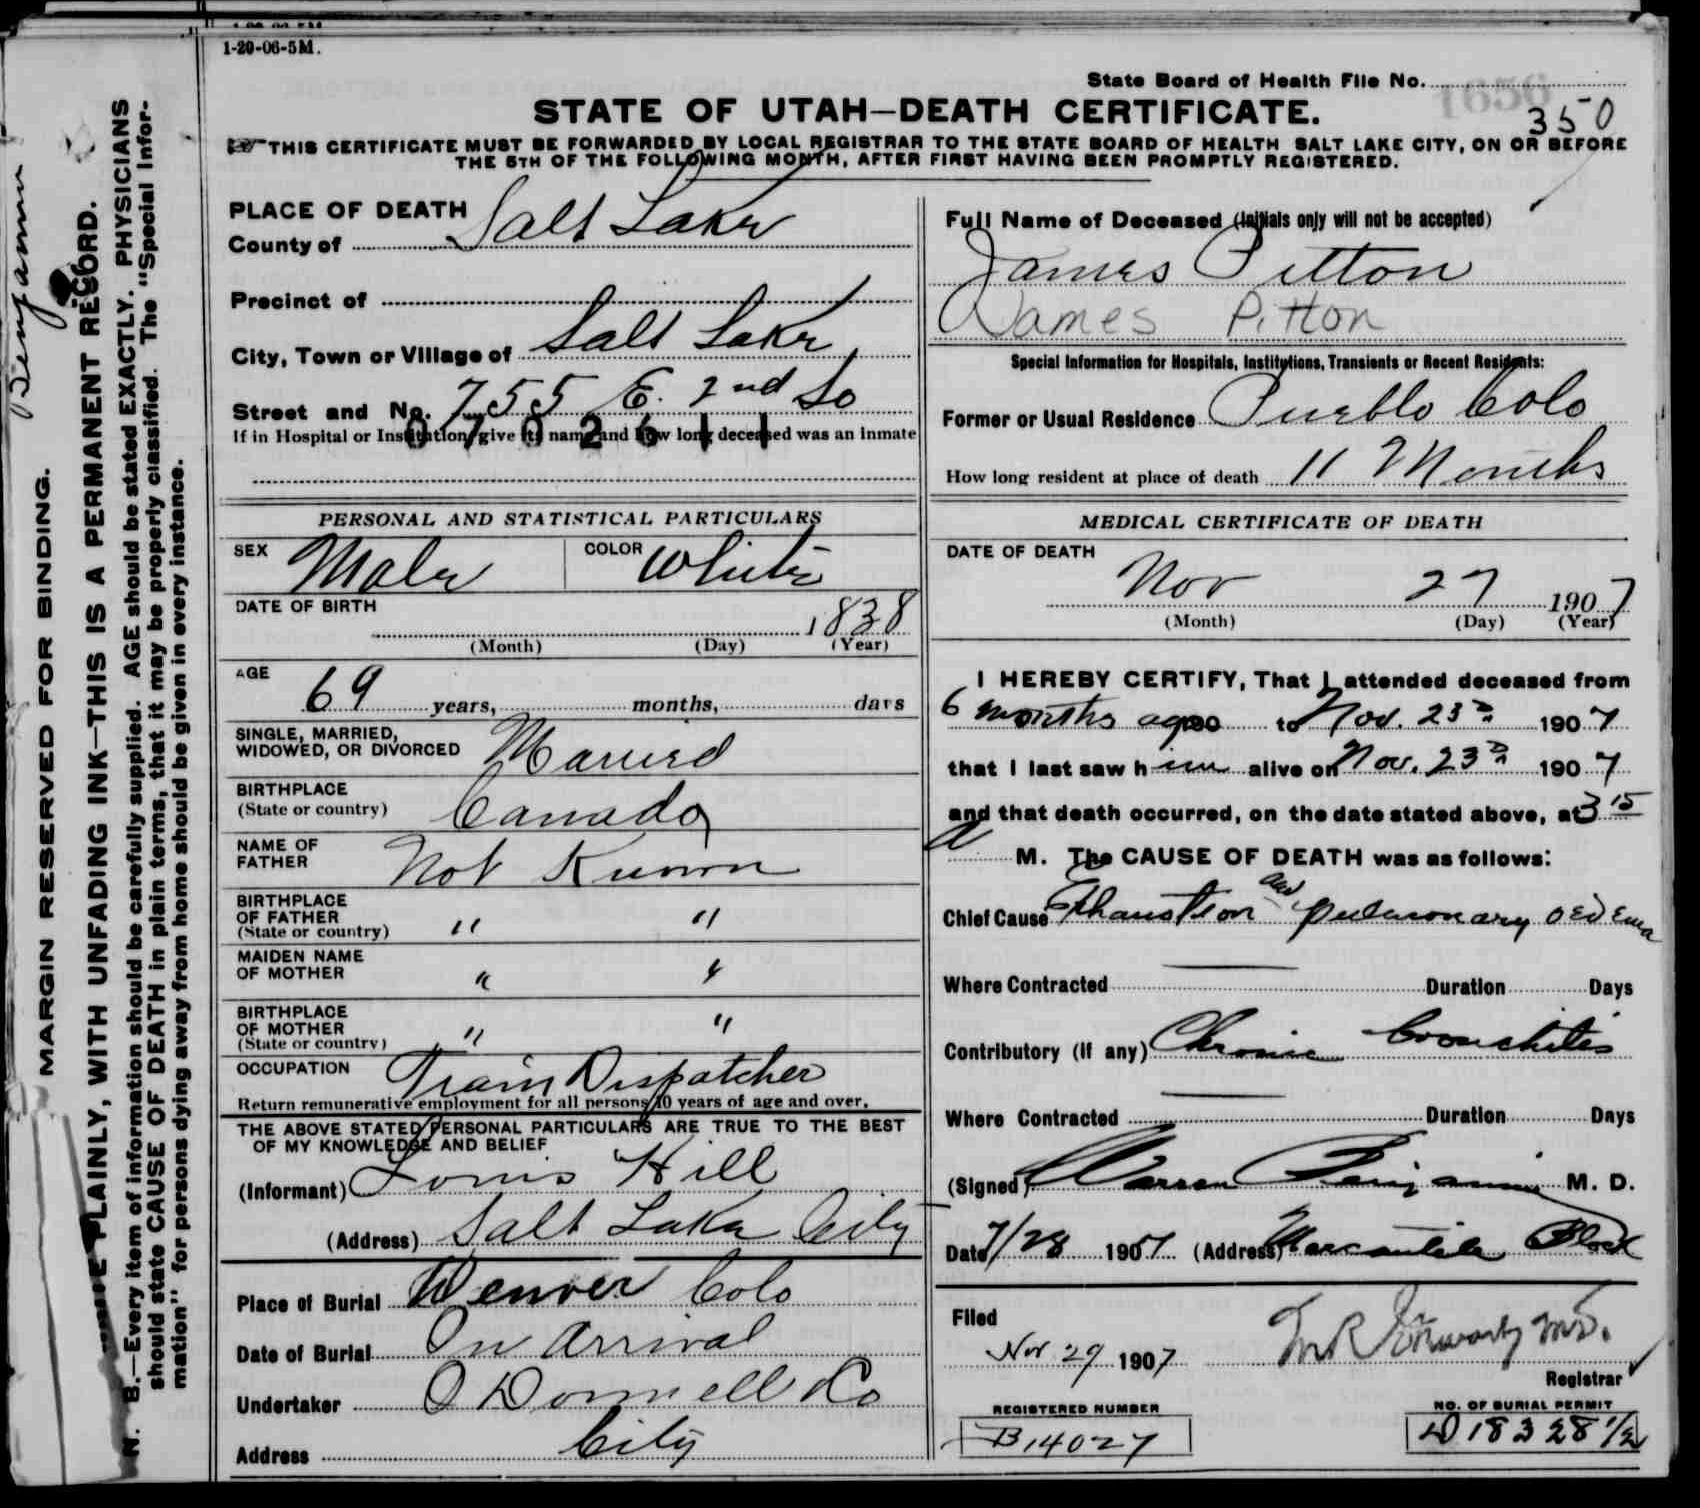 1-20-06-5M.
State Board of Health File No.
350
STATE OF UTAH—DEATH CERTIFICATE.
THIS CERTIFICATE MUST BE FORWARDED BY LOCAL REGISTRAR TO THE STATE BOARD OF HEALTH SALT LAKE CITY, ON OR BEFORE
THE 5TH OF THE FOLLOWING MONTH, AFTER FIRST HAVING BEEN PROMPTLY REGISTERED.
PLACE OF DEATH
County of Salt Lake
Precinct of
City, Town or Village of Salt Lake
Street and No. 755 E. 2nd So
If in Hospital or Institution, give its name and how long deceased was an inmate
0702611
PERSONAL AND STATISTICAL PARTICULARS
SEX Male COLOR White
DATE OF BIRTH 1838
(Month) (Day) (Year)
AGE 69 years, months, days
SINGLE, MARRIED,
WIDOWED, OR DIVORCED Married
BIRTHPLACE
(State or country) Canada
NAME OF
FATHER Not Known
BIRTHPLACE
OF FATHER
(State or country) " "
MAIDEN NAME
OF MOTHER " "
BIRTHPLACE
OF MOTHER
(State or country) " "
OCCUPATION Train Dispatcher
Return remunerative employment for all persons 10 years of age and over.
THE ABOVE STATED PERSONAL PARTICULARS ARE TRUE TO THE BEST
OF MY KNOWLEDGE AND BELIEF
(Informant) Louis Hill
(Address) Salt Lake City
Place of Burial Denver Colo
Date of Burial On Arrival
Undertaker O Donnell Co
Address City
Full Name of Deceased (Initials only will not be accepted)
James Pitton
James Pitton
Special Information for Hospitals, Institutions, Transients or Recent Residents:
Former or Usual Residence Pueblo Colo
How long resident at place of death 11 Months
MEDICAL CERTIFICATE OF DEATH
DATE OF DEATH
Nov 27 1907
(Month) (Day) (Year)
I HEREBY CERTIFY, That I attended deceased from
6 months ago to Nov. 23d 1907
that I last saw him alive on Nov. 23d 1907
and that death occurred, on the date stated above, at 3 15
a M. The CAUSE OF DEATH was as follows:
Chief Cause Exhaustion and pulmonary oedema
Where Contracted Duration Days
Contributory (if any) Chronic bronchitis
Where Contracted Duration Days
(Signed) Warren Benjamin M. D.
Date 7/28 1907 (Address) Mercantile Block
Filed
Nov 29 1907
Registrar
REGISTERED NUMBER
B14027
NO. OF BURIAL PERMIT
D 18328 1/2
Benjamin
MARGIN RESERVED FOR BINDING.
PLAINLY, WITH UNFADING INK—THIS IS A PERMANENT RECORD.
N. B.—Every item of information should be carefully supplied. AGE should be stated EXACTLY. PHYSICIANS
should state CAUSE OF DEATH in plain terms, that it may be properly classified. The "Special Infor-
mation" for persons dying away from home should be given in every instance.